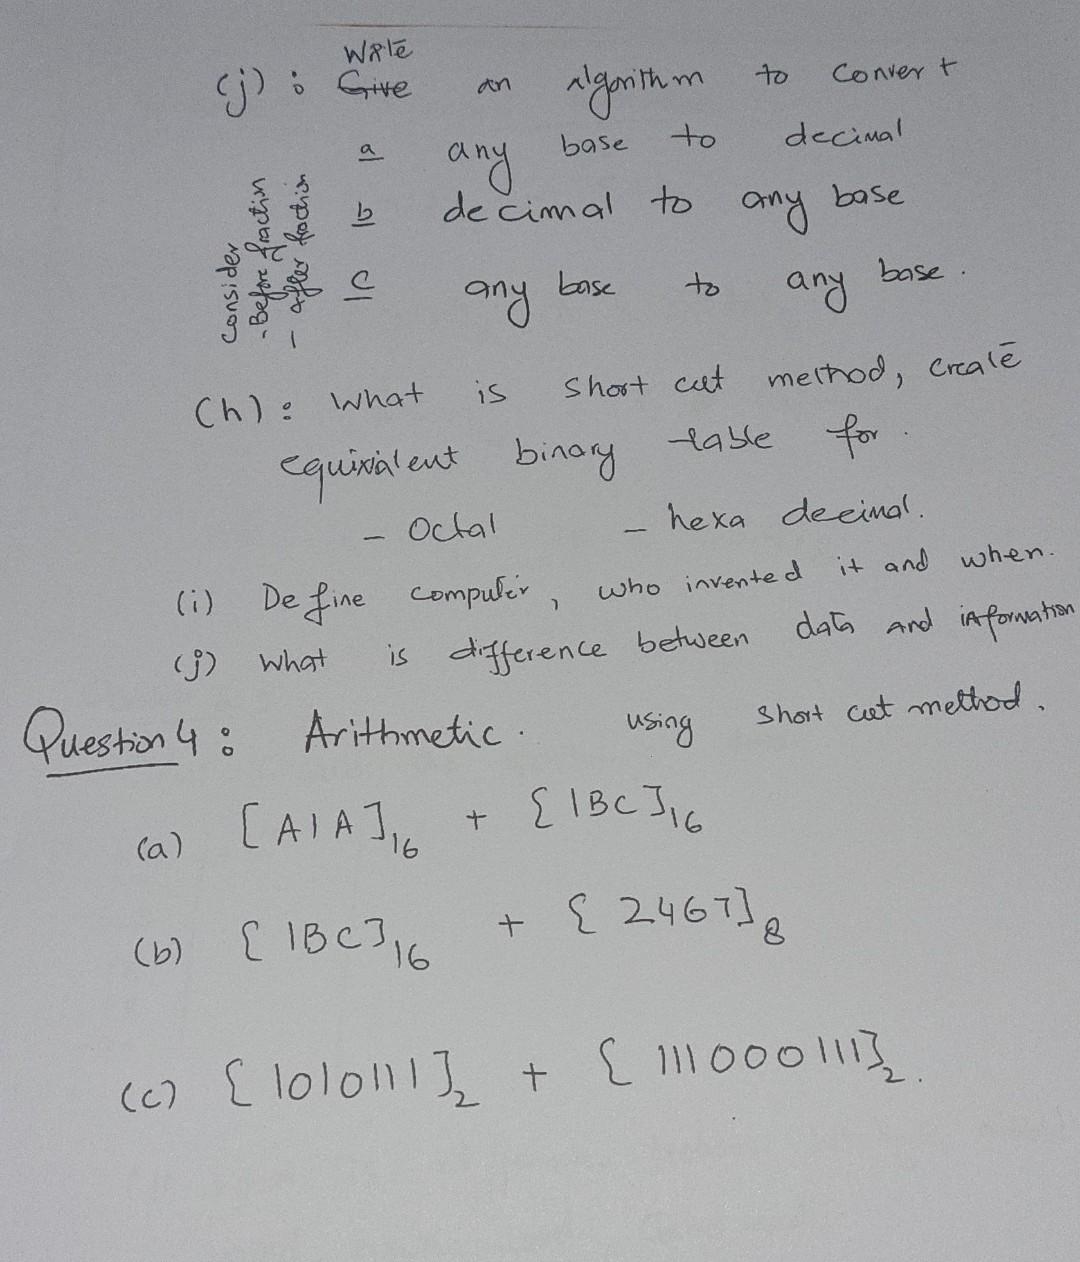 Write
(j) : Give an algorithm to convert
a any base to decimal
b decimal to any base
c any base to any base.
Consider
- Before fraction
- After fraction
(h) : What is short cut method, create
equivalent binary table for.
- Octal - hexa decimal.
(i) Define computer, who invented it and when.
(j) what is difference between data and information
Question 4 : Arithmetic. using short cut method.
(a) [A1A]16 + {1BC]16
(b) {1BC]16 + {2467]8
(c) {1010111]2 + {111000111}2.